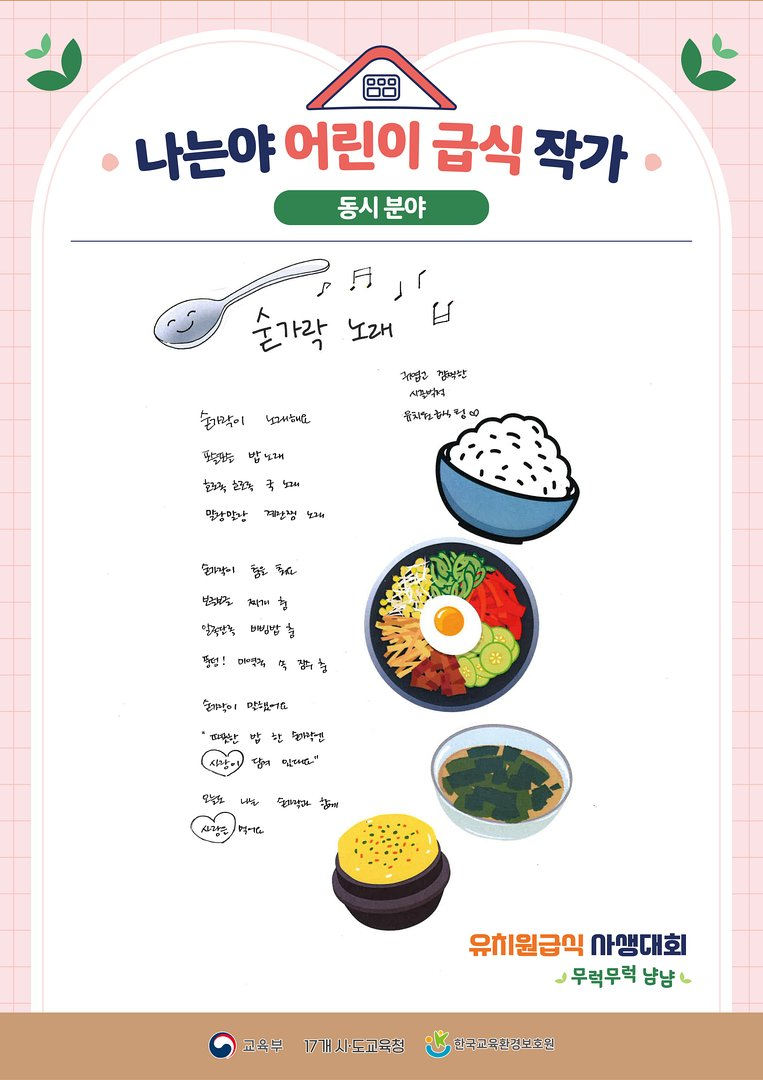 나는야 어린이 급식 작가
동시 분야
숟가락 노래
귀엽고 깜찍한
시끌벅적
유치원 급식 평♡
숟가락이 노래해요
포슬포슬 밥 노래
호로록 호로록 국 노래
말랑말랑 계란찜 노래
숟가락이 춤을 춰요
보글보글 찌개 춤
알록달록 비빔밥 춤
풍덩! 미역국 속 잠수 춤
숟가락이 말했어요
"따뜻한 밥 한 숟가락엔
사랑이 담겨 있대요"
오늘도 나는 숟가락과 함께
사랑을 먹어요
유치원급식 사생대회
무럭무럭 냠냠
교육부 17개 시·도교육청 한국교육환경보호원